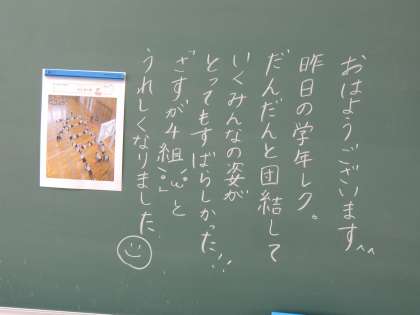 おはようございます^^
昨日の学年レク。
だんだんと団結して
いくみんなの姿が
とってもすばらしかった!!
「さすが4組!!」と
うれしくなりました